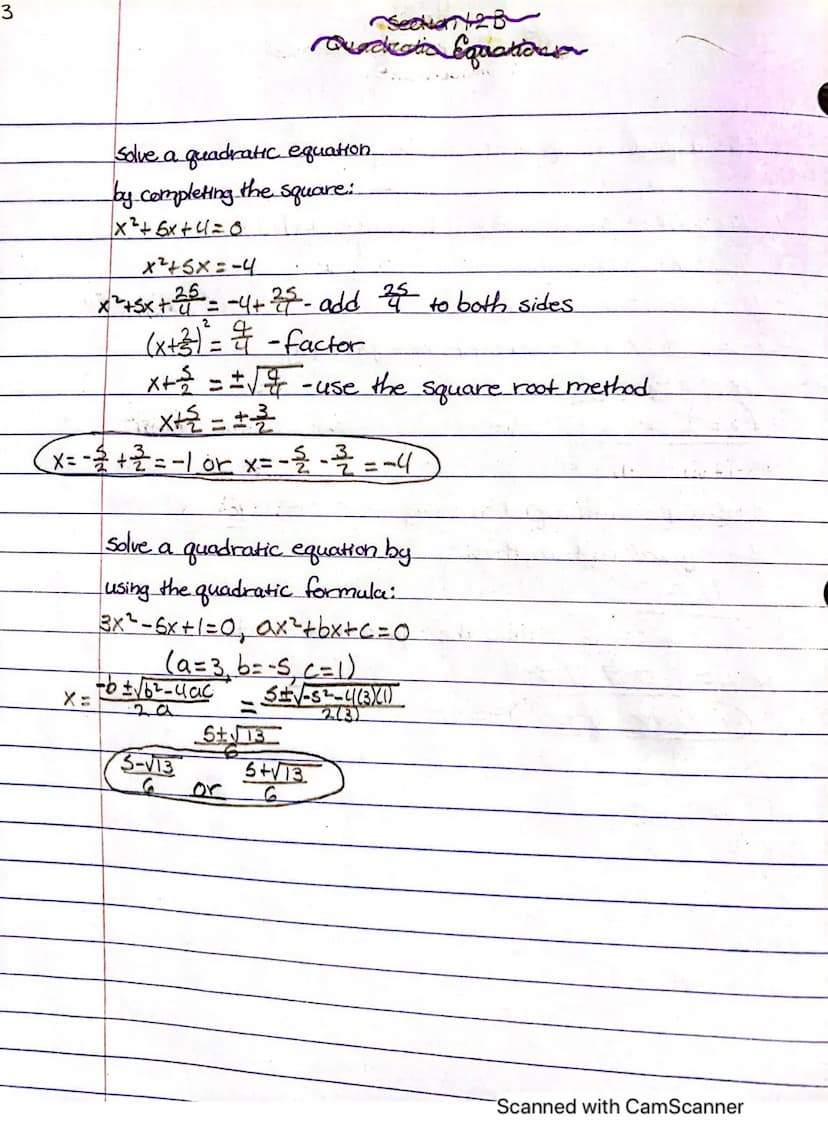 3
Section 1.2B
Quadratic Equations
Solve a quadratic equation
by completing the square:
x²+5x+4=0
x²+5x=-4
x²+5x+25/4=-4+25/4-add 25/4 to both sides
(x+5/2)²=9/4 -factor
x+5/2=±√9/4 -use the square root method
x+5/2=±3/2
x=-5/2+3/2=-1 or x=-5/2-3/2=-4
Solve a quadratic equation by
using the quadratic formula:
3x²-5x+1=0, ax²+bx+c=0
(a=3, b=-5, c=1)
x=-b±√b²-4ac/2a = 5±√-5²-4(3)(1)/2(3)
5±√13/6
5-√13/6 or 5+√13/6
Scanned with CamScanner